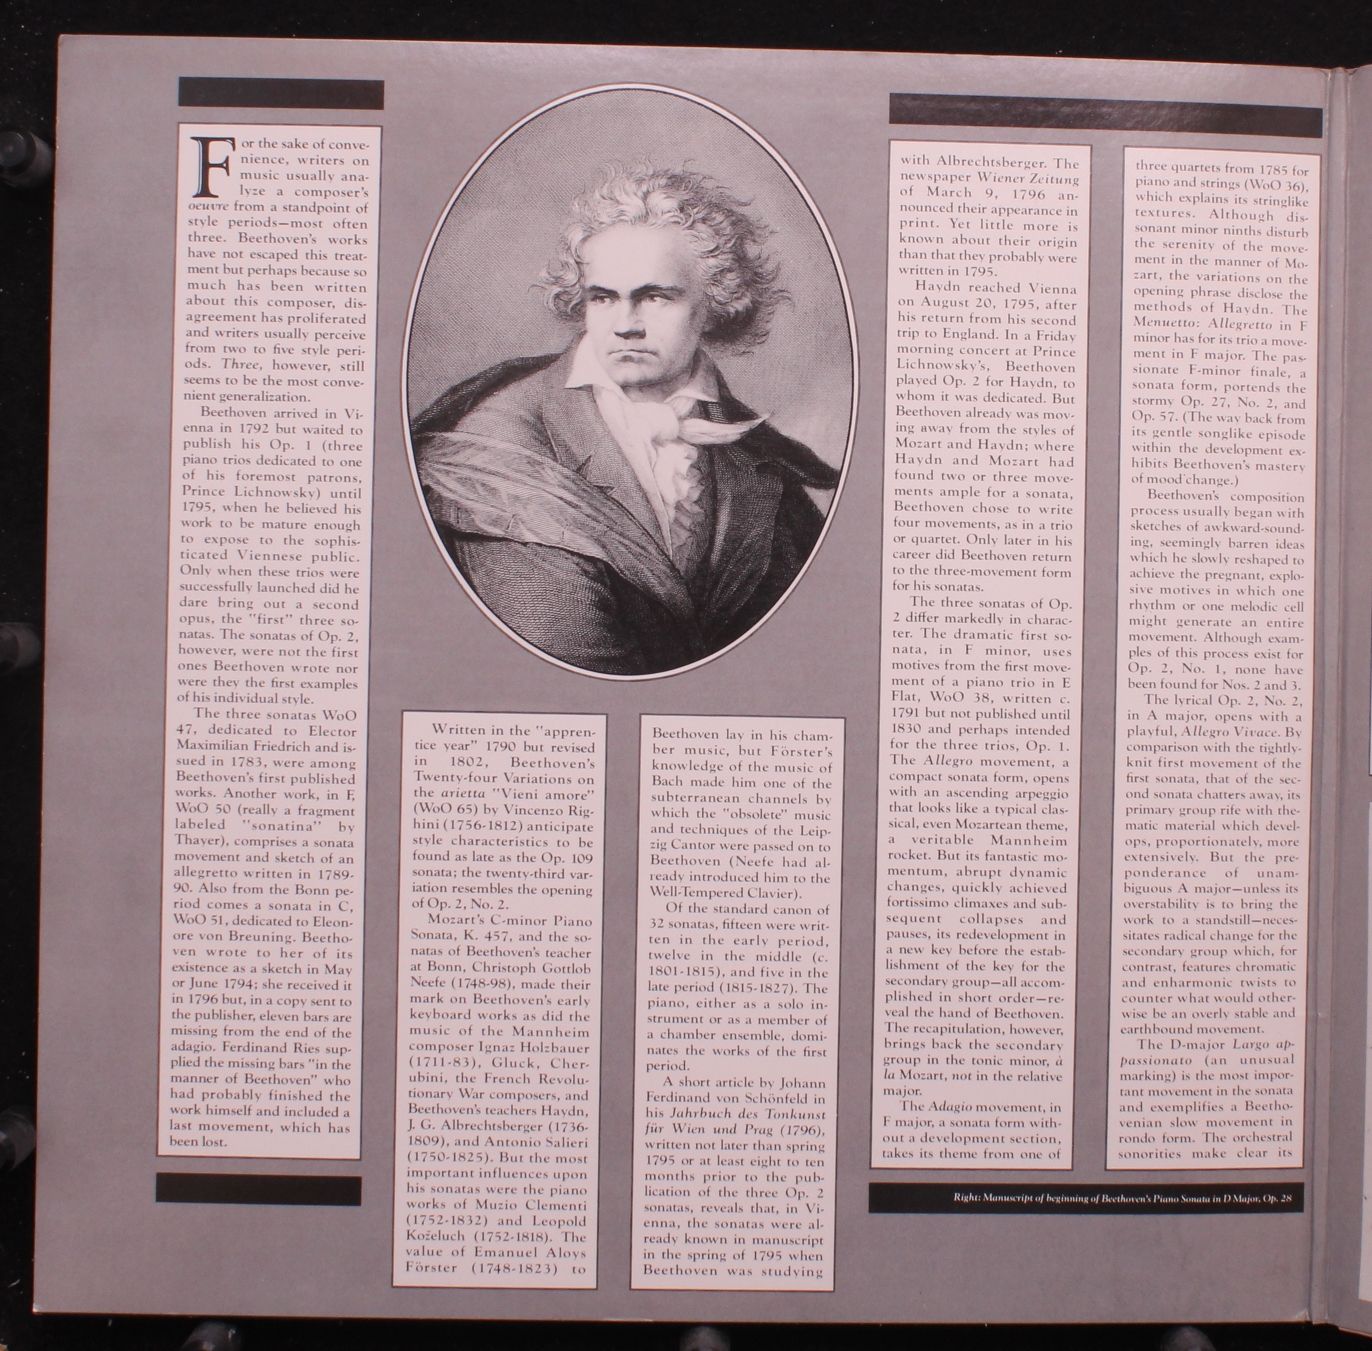 For the sake of conve-
nience, writers on
music usually ana-
lyze a composer's
oeuvre from a standpoint of
style periods—most often
three. Beethoven's works
have not escaped this treat-
ment but perhaps because so
much has been written
about this composer, dis-
agreement has proliferated
and writers usually perceive
from two to five style peri-
ods. Three, however, still
seems to be the most conve-
nient generalization.
Beethoven arrived in Vi-
enna in 1792 but waited to
publish his Op. 1 (three
piano trios dedicated to one
of his foremost patrons,
Prince Lichnowsky) until
1795, when he believed his
work to be mature enough
to expose to the sophis-
ticated Viennese public.
Only when these trios were
successfully launched did he
dare bring out a second
opus, the "first" three so-
natas. The sonatas of Op. 2,
however, were not the first
ones Beethoven wrote nor
were they the first examples
of his individual style.
The three sonatas WoO
47, dedicated to Elector
Maximilian Friedrich and is-
sued in 1783, were among
Beethoven's first published
works. Another work, in F,
WoO 50 (really a fragment
labeled "sonatina" by
Thayer), comprises a sonata
movement and sketch of an
allegretto written in 1789-
90. Also from the Bonn pe-
riod comes a sonata in C,
WoO 51, dedicated to Eleon-
ore von Breuning. Beetho-
ven wrote to her of its
existence as a sketch in May
or June 1794; she received it
in 1796 but, in a copy sent to
the publisher, eleven bars are
missing from the end of the
adagio. Ferdinand Ries sup-
plied the missing bars "in the
manner of Beethoven" who
had probably finished the
work himself and included a
last movement, which has
been lost.
Written in the "appren-
tice year" 1790 but revised
in 1802, Beethoven's
Twenty-four Variations on
the arietta "Vieni amore"
(WoO 65) by Vincenzo Rig-
hini (1756-1812) anticipate
style characteristics to be
found as late as the Op. 109
sonata; the twenty-third var-
iation resembles the opening
of Op. 2, No. 2.
Mozart's C-minor Piano
Sonata, K. 457, and the so-
natas of Beethoven's teacher
at Bonn, Christoph Gottlob
Neefe (1748-98), made their
mark on Beethoven's early
keyboard works as did the
music of the Mannheim
composer Ignaz Holzbauer
(1711-83), Gluck, Cher-
ubini, the French Revolu-
tionary War composers, and
Beethoven's teachers Haydn,
J. G. Albrechtsberger (1736-
1809), and Antonio Salieri
(1750-1825). But the most
important influences upon
his sonatas were the piano
works of Muzio Clementi
(1752-1832) and Leopold
Koželuch (1752-1818). The
value of Emanuel Aloys
Förster (1748-1823) to
Beethoven lay in his cham-
ber music, but Förster's
knowledge of the music of
Bach made him one of the
subterranean channels by
which the "obsolete" music
and techniques of the Leip-
zig Cantor were passed on to
Beethoven (Neefe had al-
ready introduced him to the
Well-Tempered Clavier).
Of the standard canon of
32 sonatas, fifteen were writ-
ten in the early period,
twelve in the middle (c.
1801-1815), and five in the
late period (1815-1827). The
piano, either as a solo in-
strument or as a member of
a chamber ensemble, domi-
nates the works of the first
period.
A short article by Johann
Ferdinand von Schönfeld in
his Jahrbuch des Tonkunst
für Wien und Prag (1796),
written not later than spring
1795 or at least eight to ten
months prior to the pub-
lication of the three Op. 2
sonatas, reveals that, in Vi-
enna, the sonatas were al-
ready known in manuscript
in the spring of 1795 when
Beethoven was studying
with Albrechtsberger. The
newspaper Wiener Zeitung
of March 9, 1796 an-
nounced their appearance in
print. Yet little more is
known about their origin
than that they probably were
written in 1795.
Haydn reached Vienna
on August 20, 1795, after
his return from his second
trip to England. In a Friday
morning concert at Prince
Lichnowsky's, Beethoven
played Op. 2 for Haydn, to
whom it was dedicated. But
Beethoven already was mov-
ing away from the styles of
Mozart and Haydn; where
Haydn and Mozart had
found two or three move-
ments ample for a sonata,
Beethoven chose to write
four movements, as in a trio
or quartet. Only later in his
career did Beethoven return
to the three-movement form
for his sonatas.
The three sonatas of Op.
2 differ markedly in charac-
ter. The dramatic first so-
nata, in F minor, uses
motives from the first move-
ment of a piano trio in E
Flat, WoO 38, written c.
1791 but not published until
1830 and perhaps intended
for the three trios, Op. 1.
The Allegro movement, a
compact sonata form, opens
with an ascending arpeggio
that looks like a typical clas-
sical, even Mozartean theme,
a veritable Mannheim
rocket. But its fantastic mo-
mentum, abrupt dynamic
changes, quickly achieved
fortissimo climaxes and sub-
sequent collapses and
pauses, its redevelopment in
a new key before the estab-
lishment of the key for the
secondary group—all accom-
plished in short order—re-
veal the hand of Beethoven.
The recapitulation, however,
brings back the secondary
group in the tonic minor, à
la Mozart, not in the relative
major.
The Adagio movement, in
F major, a sonata form with-
out a development section,
takes its theme from one of
three quartets from 1785 for
piano and strings (WoO 36),
which explains its stringlike
textures. Although dis-
sonant minor ninths disturb
the serenity of the move-
ment in the manner of Mo-
zart, the variations on the
opening phrase disclose the
methods of Haydn. The
Menuetto: Allegretto in F
minor has for its trio a move-
ment in F major. The pas-
sionate F-minor finale, a
sonata form, portends the
stormy Op. 27, No. 2, and
Op. 57. (The way back from
its gentle songlike episode
within the development ex-
hibits Beethoven's mastery
of mood change.)
Beethoven's composition
process usually began with
sketches of awkward-sound-
ing, seemingly barren ideas
which he slowly reshaped to
achieve the pregnant, explo-
sive motives in which one
rhythm or one melodic cell
might generate an entire
movement. Although exam-
ples of this process exist for
Op. 2, No. 1, none have
been found for Nos. 2 and 3.
The lyrical Op. 2, No. 2,
in A major, opens with a
playful, Allegro Vivace. By
comparison with the tightly-
knit first movement of the
first sonata, that of the sec-
ond sonata chatters away, its
primary group rife with the-
matic material which devel-
ops, proportionately, more
extensively. But the pre-
ponderance of unam-
biguous A major—unless its
overstability is to bring the
work to a standstill—neces-
sitates radical change for the
secondary group which, for
contrast, features chromatic
and enharmonic twists to
counter what would other-
wise be an overly stable and
earthbound movement.
The D-major Largo ap-
passionato (an unusual
marking) is the most impor-
tant movement in the sonata
and exemplifies a Beetho-
venian slow movement in
rondo form. The orchestral
sonorities make clear its
Right: Manuscript of beginning of Beethoven's Piano Sonata in D Major, Op. 28